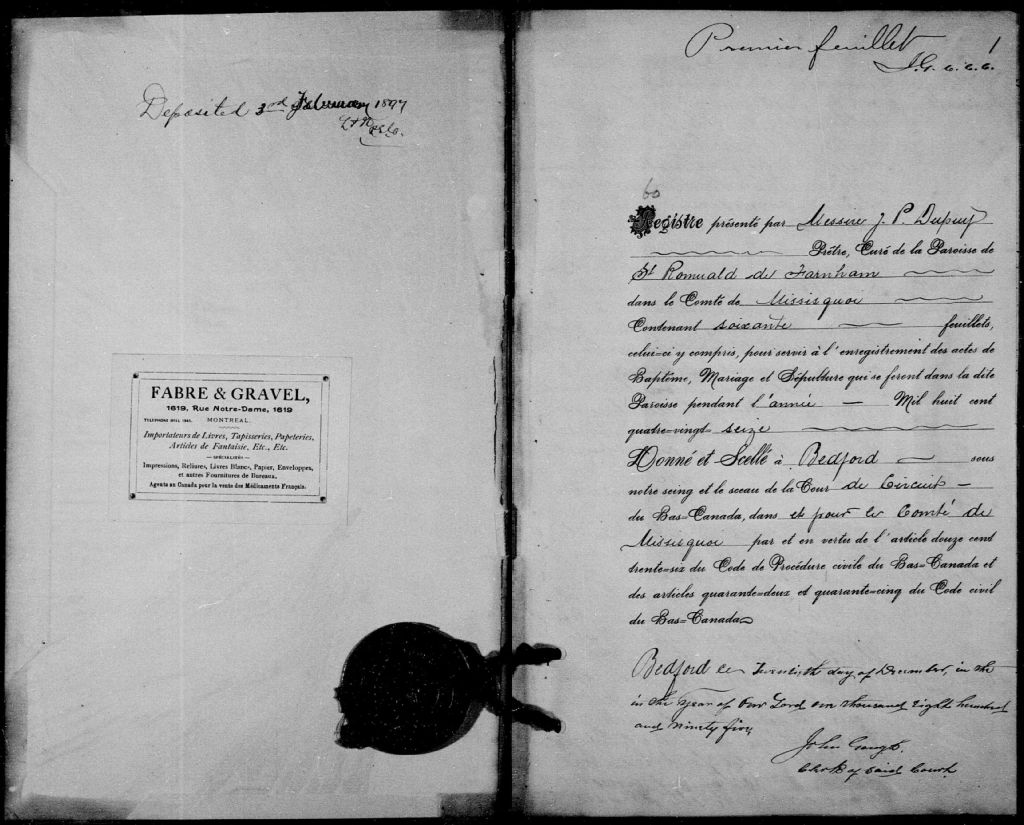 Deposited 3rd February 1897
FABRE & GRAVEL,
1619, Rue Notre-Dame, 1619
MONTREAL.
Importateurs de Livres, Tapisseries, Papeteries,
Articles de Fantaisie, Etc., Etc.
SPÉCIALITÉS
Impressions, Reliures, Livres Blancs, Papier, Enveloppes,
et autres Fournitures de Bureaux.
Agents au Canada pour la vente des Médicaments Français.
Premier feuillet 1
J.G. c.c.c.
60
Registre présenté par Messire J. P. Dupuy
Prêtre, Curé de la Paroisse de
St Romuald de Farnham
dans le Comté de Missisquoi
Contenant soixante feuillets,
celui=ci y compris, pour servir à l'enregistrement des actes de
Baptême, Mariage et Sépulture qui se feront dans la dite
Paroisse pendant l'année — Mil huit cent
quatre=vingt seize
Donné et Scellé à Bedford — sous
notre seing et le sceau de la Cour de Circuit —
du Bas=Canada, dans et pour le Comté de
Missisquoi par et en vertu de l'article douze cent
trente=six du Code de Procédure civile du Bas=Canada et
des articles quarante=deux et quarante=cinq du Code civil
du Bas=Canada
Bedford ce Twentieth day of December, in the
in the Year of Our Lord one thousand Eight hundred
and ninety five
John Gough.
Clerk of said Court